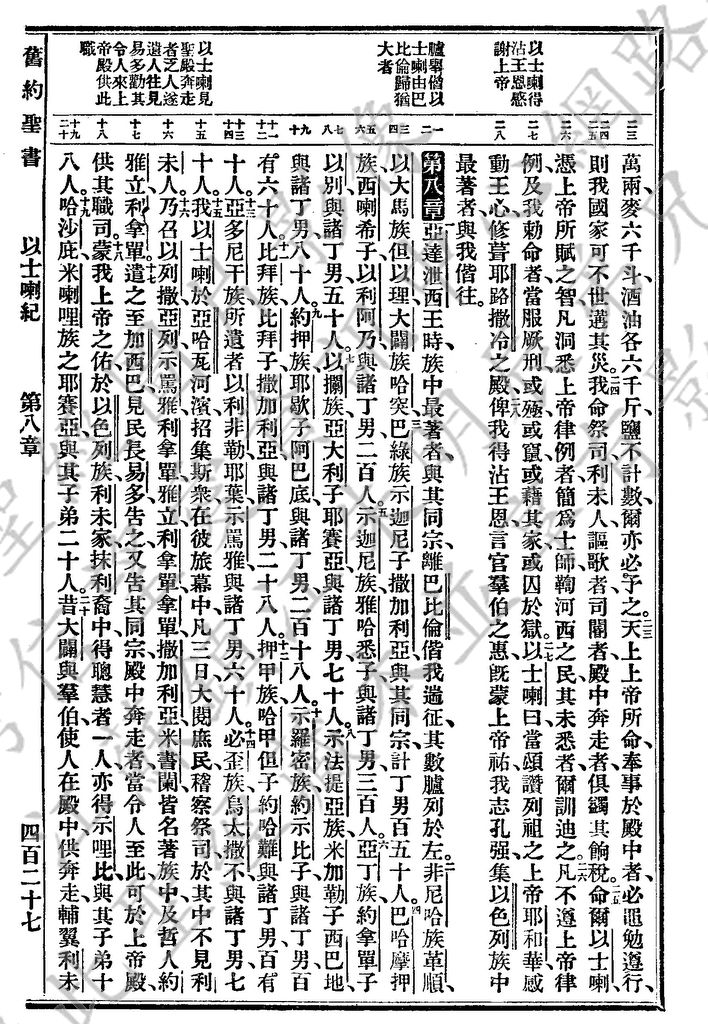 舊約聖書
以士喇紀
第八章
四百二十七
以士喇得沾王恩感謝上帝
臚舉偕以士喇由巴比倫歸猶大者
以士喇見聖殿奔走者乏人遂遺人往見易多勸其令人來上帝殿供此職
二三
二四
二五
二六
二七
二八
一二
三四
五六
七八
九十
十一
十二
十三
十四
十五
十六
十七
十八
十九
二十
萬兩麥六千斗酒油各六千斤鹽不計數爾亦必予之二三天上上帝所命奉事於殿中者必黽勉遵行
則我國家可不世遘其災二四我命祭司利未人謳歌者司閽者殿中奔走者俱蠲其餉稅二五命爾以士喇
憑上帝所賦之智凡洞悉上帝律例者簡爲士師鞫河西之民其未悉者爾訓迪之二六凡不遵上帝律
例及我勅命者當服厥刑或殛或竄或藉其家或囚於獄二七以士喇曰當頌讚列祖之上帝耶和華感
動王心修葺耶路撒冷之殿二八俾我得沾王恩言官羣伯之惠旣蒙上帝祐我志孔强集以色列族中
最著者與我偕往
第八章一亞達泄西王時族中最著者與其同宗離巴比倫偕我遄征其數臚列於左二非尼哈族革順
以大馬族但以理大闢族哈突三巴綠族示迦尼子撒加利亞與其同宗計丁男百五十人四巴哈摩押
族西喇希子以利阿乃與諸丁男二百人五示迦尼族雅哈悉子與諸丁男三百人六亞丁族約拿單子
以別與諸丁男五十人七以攔族亞大利子耶賽亞與諸丁男七十人八示法提亞族米加勒子西巴地
與諸丁男八十人九約押族耶歇子阿巴底與諸丁男二百十八人十示羅密族約示比子與諸丁男百
有六十人十一比拜族比拜子撒加利亞與諸丁男二十八人十二押甲族哈甲但子約哈難與諸丁男百有
十人十三亞多尼干族所遺者以利非勒耶葉示罵雅與諸丁男六十人十四必歪族烏太撒不與諸丁男七
十人十五我以士喇於亞哈瓦河濱招集斯衆在彼旅幕中凡三日大閱庶民稽察祭司於其中不見利
未人十六乃召以列撒亞列示罵雅利拿單雅立利拿單拿單撒加利亞米書闌皆名著族中及哲人約
雅立利拿單十七遣之至加西巴見民長易多吿之又吿其同宗殿中奔走者當令人至此可於上帝殿
供其職司十八蒙我上帝之佑於以色列族利未家抹利裔中得聰慧者一人亦得示哩比與其子弟十
八人十九哈沙庇米喇哩族之耶賽亞與其子弟二十人二十昔大闢與羣伯使人在殿中供奔走輔翼利未